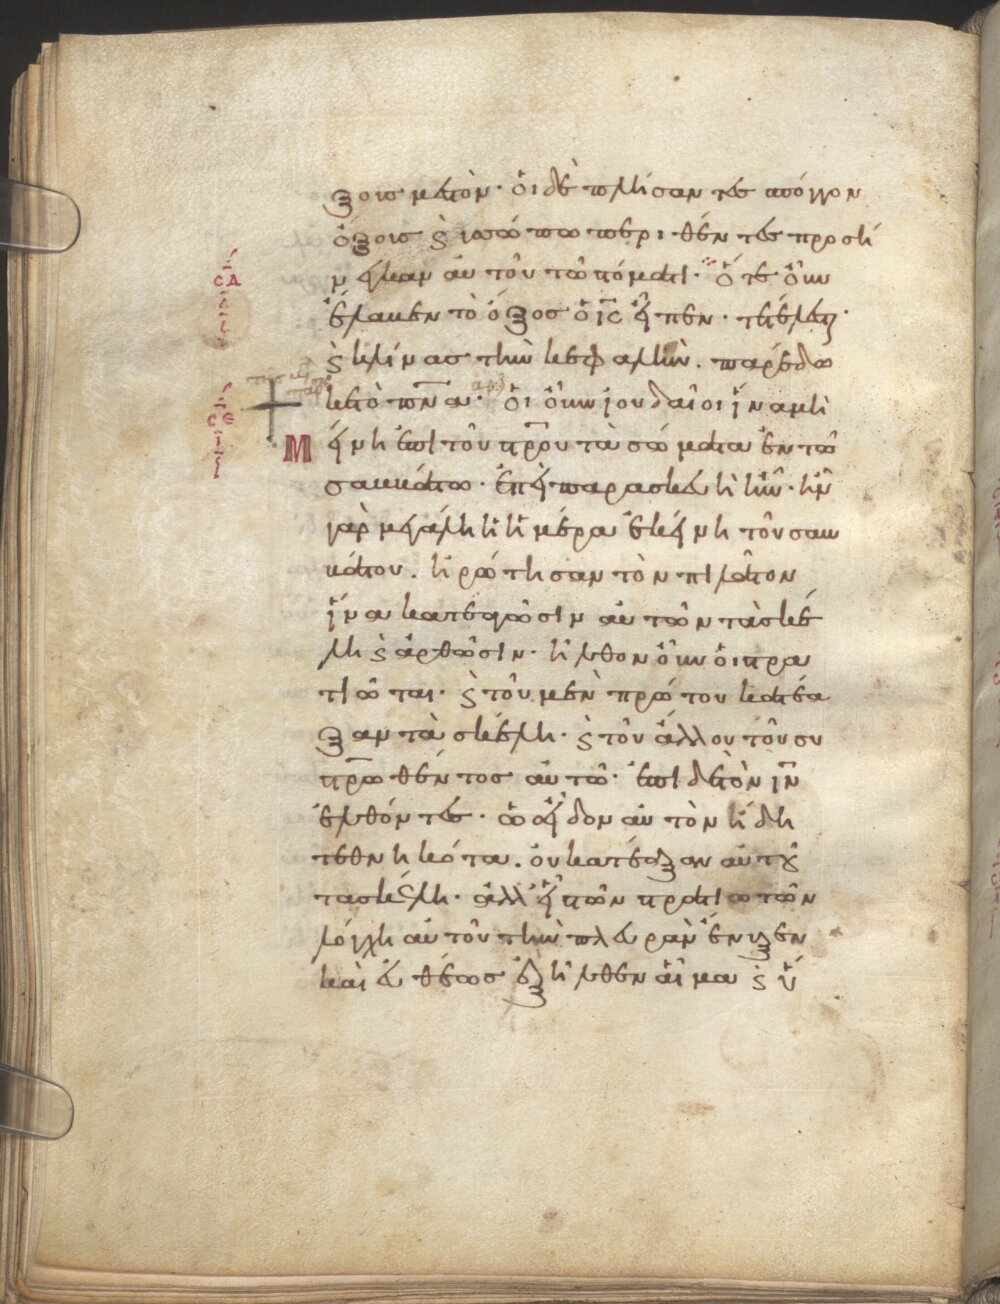 ξους μεστὸν· ὁι δὲ πλήσαντες σπόγγον
ὄξους ϗ ὑσσώπω περιθέντες προσή
νεγκαν αυτοῦ τῶ στόματι· Ὅτε οὖν
ἔλαβεν τὸ ὄξος ὁ ις εἶπεν· τετέλεσται·
ϗ κλίνας τὴν κεφαλὴν· παρέδω
κε τὸ πνα· Ὁι οὖν ἰουδαῖοι ἵνα μὴ
Μείνη ἐπὶ τοῦ στρου τὰ σώματα ἐν τῶ
σαββάτω· ἐπεὶ παρασκεύὴ ἦν· ἦν
γὰρ μεγάλη ἡ ἡμέρα ἐκείνη τοῦ σαβ
βάτου· ἠρώτησαν τὸν πιλᾶτον
ἵνα κατεαγῶσιν αυτῶν τὰ σκέ
λη ϗ ἀρθῶσιν· ἦλθον οὖν ὁι στρα
τιῶται· ϗ τοῦ μὲν πρώτου κατέα
ξαν τὰ σκέλη· ϗ τοῦ ἄλλου τοῦ συ
στρωθέντος αυτῶ· ἐπὶ δὲ τὸν ιν
ἐλθόντες· ὡ εἶδον αυτὸν ἤδη
τεθνηκότα· ὀυ κατέαξαν αυτοῦ
τα σκέλη· ἀλλ εἷς τῶν στρατιωτῶν
λόγχη αυτοῦ τὴν πλευρὰν ἔνυξεν
καὶ ἐυθέως ἐξῆλθεν αἷμα ϗ ὕ